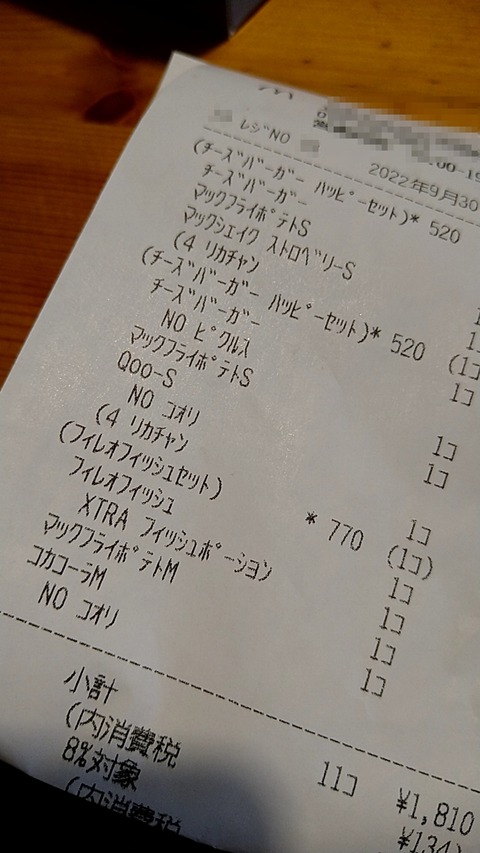 レジNO
2022年9月30
(チーズバーガー ハッピーセット)* 520
チーズバーガー
マックフライポテトS 1
マックシェイク ストロベリーS 1
(4 リカチャン (1コ
(チーズバーガー ハッピーセット)* 520 1コ
チーズバーガー
NO ピクルス
マックフライポテトS 1コ
QOO-S 1コ
NO コオリ
(4 リカチャン 1コ
(フィレオフィッシュセット) * 770 (1コ)
フィレオフィッシュ 1コ
XTRA フィッシュポーション 1コ
マックフライポテトM 1コ
コカコーラM 1コ
NO コオリ
小計 11コ ¥1,810
(内消費税 ¥134)
8%対象
(内消費税